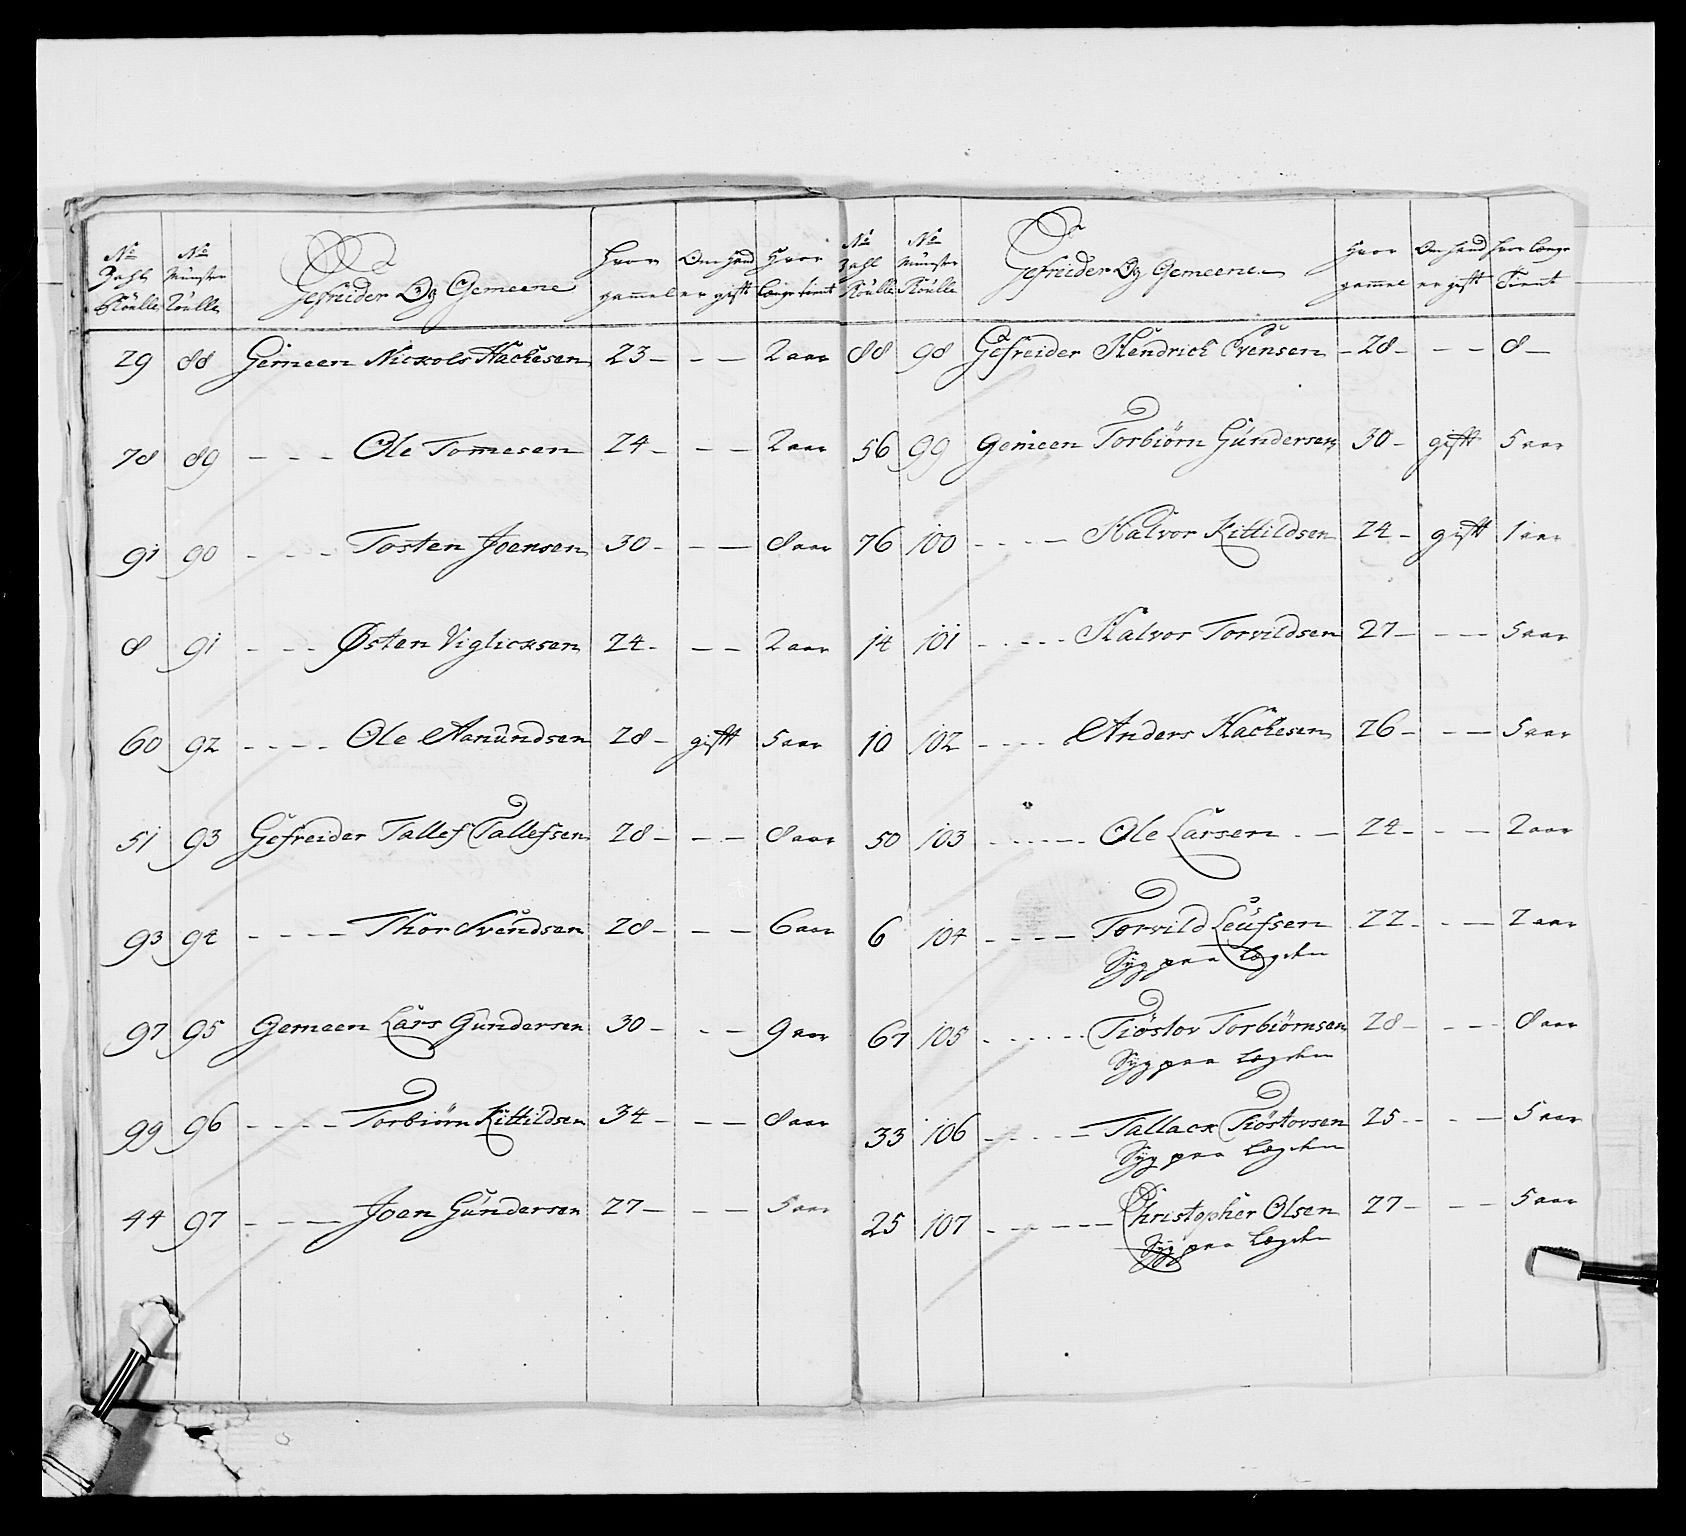 No Zahl Röulle | No Münster Röulle | Gefreider Og Gemeene | Hvor gammel | Om hand er gifft | Hvor længe tient
29 88 Gemeen Nickols Hackesen 23 - - - 2 aar
78 89 - - - Ole Tomesen 24 - - - 2 aar
91 90 - - - Tosten Joensen 30 - - - 8 aar
8 91 - - - Østen Viglicksen 24 - - - 2 aar
60 92 - - - - Ole Aanundsen 28 - gifft 5 aar
51 93 Gefreider Tallef Tallefsen 28 - - - 8 aar
93 94 - - - - Thor Svendsen 28 - - - 6 aar
97 95 Gemeen Lars Gundersen 30 - - - 9 aar
99 96 - - - - Torbiørn Kittildsen 34 - - - 8 aar
44 97 - - - Joen Gundersen 27 - - - 5 aar
No Zahl Röulle | No Münster Röulle | Gefreider Og Gemeene | Hvor gammel | Om hand er gifft | hvor længe Tient
88 98 Gefreider Hendrich Evensen - 28 - - - 8 -
56 99 Gemeen Torbiørn Gundersen 30 - gifft 5 aar
76 100 - - - - Halvor Kittildsen 24 - gifft 1 aar
14 101 - - - - Halvor Torvildsen 27 - - - 5 aar
10 102 - - - - Anders Hackesen 26 - - - 5 aar
50 103 - - - - - Ole Larsen - - 24 - - - 2 aar
6 104 - - - - Torvild Leufsen 22 - - - 2 aar
Syg paa Lægden
67 105 - - - - - - Tiøstov Torbiørnsen 28 - - - 8 aar
Syg paa Lægden
33 106 - - - - - Tallack Tiøstovsen 25 - - - 5 aar
Syg paa Lægden
25 107 - - - - - - Christopher Olsen 27 - - - 5 aar
Syg paa Lægden